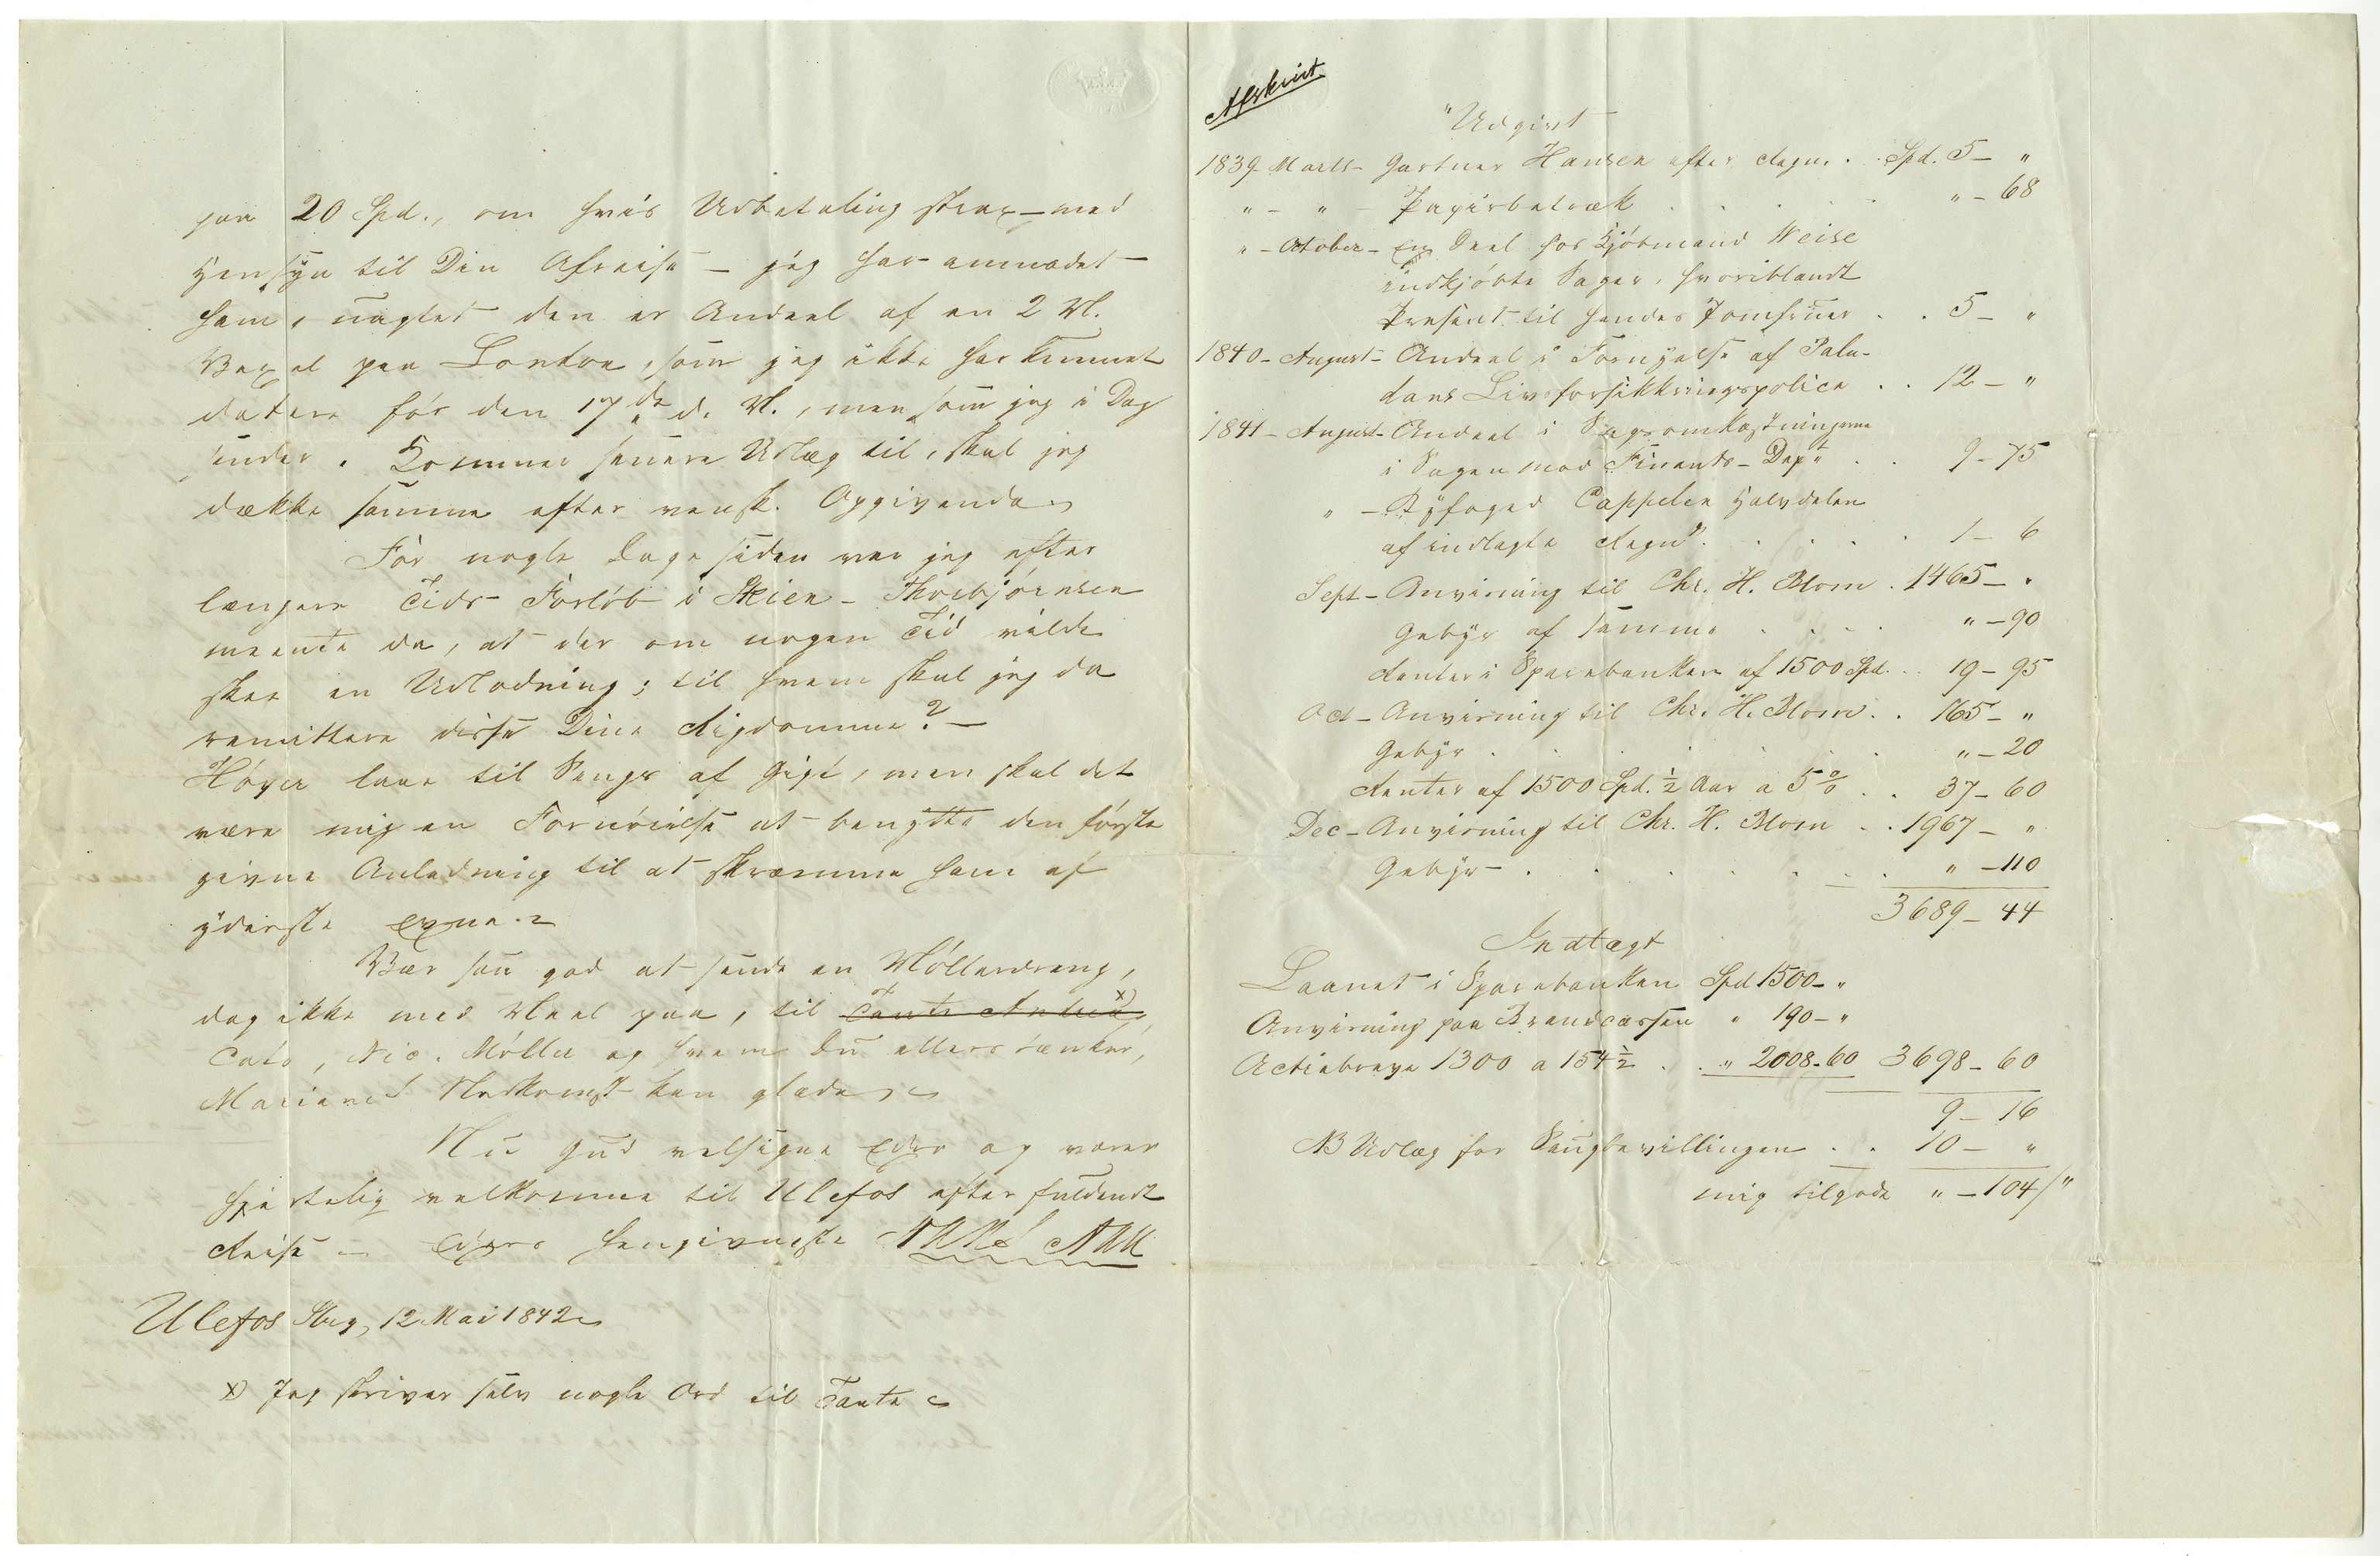 paa 20 Spd., om hvis Udbetaling strax – med
Hensyn til Din Afreise – jeg har anmodet
ham, uagtet den er Andeel af en 2 M.
Vexel paa London, som jeg ikke har kunnet
datere før den 17de d. M., men som jeg i Dag
sender. Kommer senere Udlæg til, skal jeg
dække samme efter vensk. Opgivende
For nogle Dage siden var jeg efter
længere Tids Forløb i Skien – Thorbjørnsen
meente da, at der om nogen Tid vilde
skee en Udlodning; til hvem skal jeg da
remittere disse Dine Rigdomme? –
Høyer laae til Sengs af Gigt, men skal det
være mig en Fornøielse at benytte den første
givne Anledning til at skræmme ham af
yderste Evne.
Vær saa god at sende en Møllerdreng,
dog ikke med Meel paa, til Tante x)
Cato, Nic. Møller og hvem Du ellers tænker,
Nedkomst kan glæde
Nu Gud velsigne Eder og værer
hjertelig velkomne til Ulefos efter fuldendt
Reise – Eders hengivneste
Ulefos Vbrg, 12 Mai 1842
x) Jeg skriver selv nogle Ord til Tante
Afskrivt
"Udgivt
1839 Marts – Gartner Hansen efter Regn. . . Spd. 5 – "
" – " – Papirbetræk . . . . " – 68
" – October – En Deel hos Kjøbmand Weise
indkjøbte Sager, hvoriblandt
Present til hendes Jomfruer . . 5 – "
1840 – August – Andeel i Fornyelse af Palu-
dans Livsforsikkringspolice . . 12 – "
1841 – August – Andeel i Sagsomkostningerne
i Sagen mod Finants-Dept . . 9 – 75
" – Byfoged Cappelen Halvdelen
af indlagte Regng. . . . . 1 – 6
Sept – Anviisning til Chr. H. Blom . 1465 – "
Gebyr af samme . . . . " – 90
Renter i Sparebanken af 1500 Spd. . . 19 – 95
Oct – Anviisning til Chr. H. Blom . . 165 – "
Gebyr . . . . . . " – 20
Renter af 1500 Spd. ½ Aar a 5 % . . 37 – 60
Dec – Anviisning til Chr. H. Blom . . 1967 – "
Gebyr . . . . . . " – 110
3689 – 44
Indtægt
Laanet i Sparebanken Spd 1500 – "
Anviisning paa Brandcassen " 190 – "
Actiebreve 1300 a 154½ . . " 2008 – 60 3698 – 60
9 – 16
NB Udlæg for . . 10 – "
mig tilgode " – 104/"